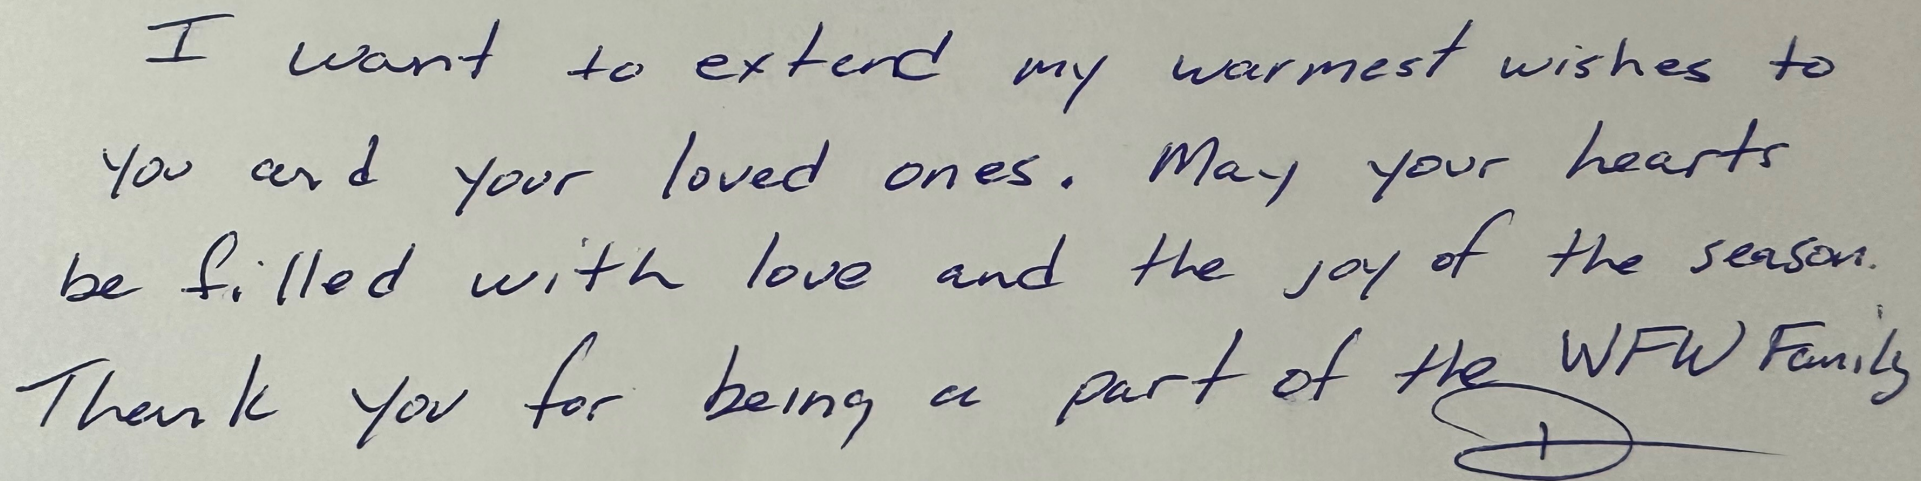 I want to extend my warmest wishes to
you and your loved ones. May your hearts
be filled with love and the joy of the season.
Thank you for being a part of the WFW Family